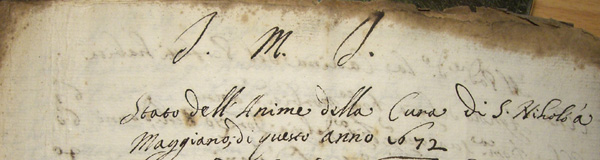 J. M. J.
Stato dell'Anime della Cura di S. Nicholo à
Maggiano, di questo anno 1672